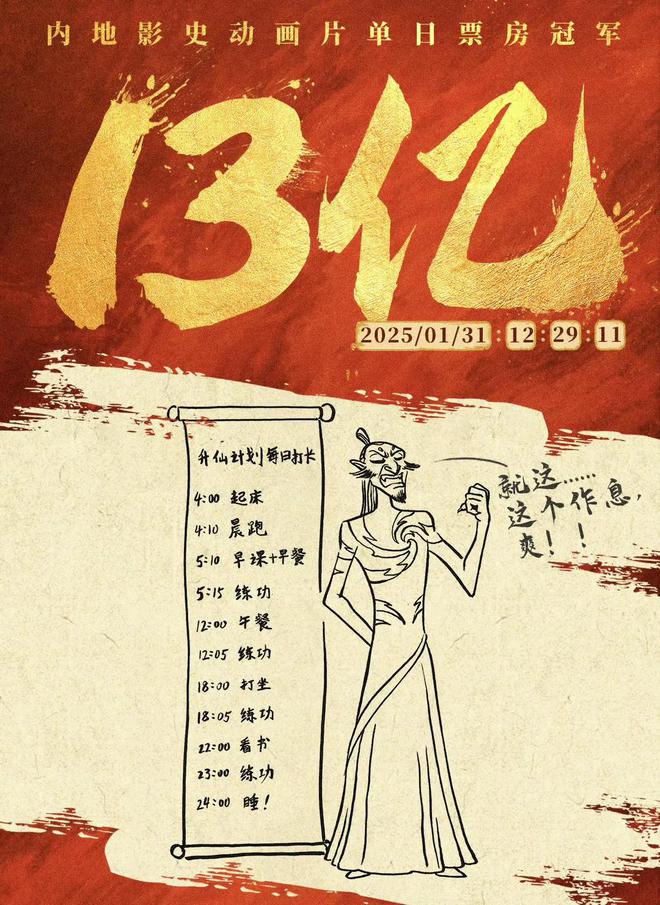 内地影史动画片单日票房冠军
13亿
2025/01/31:12:29:11
升仙计划每日打卡
4:00 起床
4:10 晨跑
5:10 早课+早餐
5:15 练功
12:00 午餐
12:05 练功
18:00 打坐
18:05 练功
22:00 看书
23:00 练功
24:00 睡!
就这……
这个作息,
爽!!